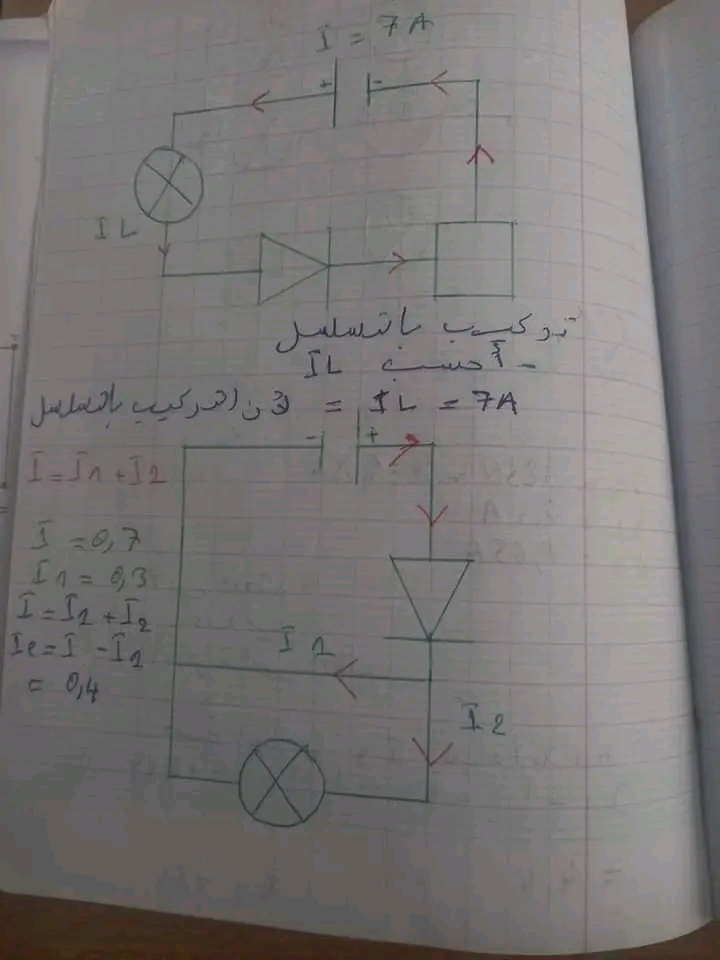 I = 7A
+ -
IL
تركيب بالتسلسل
- أحسب IL
لأن التركيب بالتسلسل = IL = 7A
- +
I = I1 + I2
I = 0,7
I1 = 0,3
I = I1 + I2
Ie = I - I1
= 0,4
I1
I2